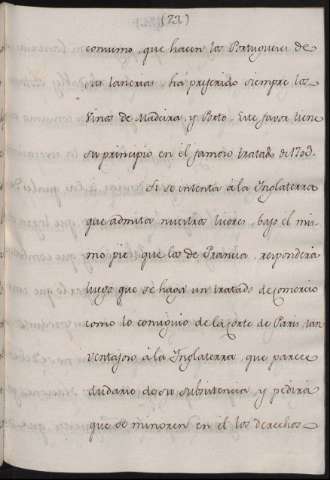 (23.)
consumo, que hacen los Portugueses de
sus lanerias, ha preferido siempre los
Vinos de Madeira, y Porto. Este favor tiene
su principio en el famoso tratado de 1703.
Si se intentá á la Inglaterra
que admita nuestros licores, bajo el mis-
mo pie que los de Francia, responderá
luego que se haga un tratado de comercio
como lo consiguio de la Corte de Paris, tan
ventajoso á la Ynglaterra, que parece
dudario de su subsistencia, y pedirá
que se minoren en el los derechos